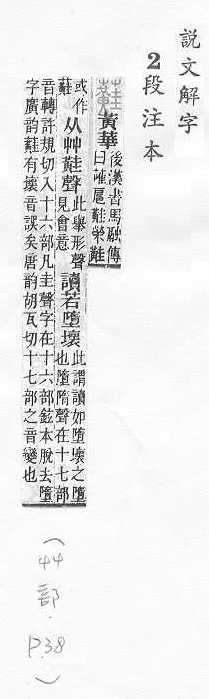 説文解字
2段注本
蘳 黃華 後漢書馬融傳
曰蓶扈蘳熒蘳
或作
蘳 从艸黊聲 此舉形聲
見會意 讀若墮壞 此謂讀如墮壞之墮
也墮隋聲在十七部
音轉許規切入十六部凡圭聲字在十六部鉉本脫去墮
字廣韵蘳有壞音誤矣唐韵胡瓦切十七部之音變也
(艸部.P.38)